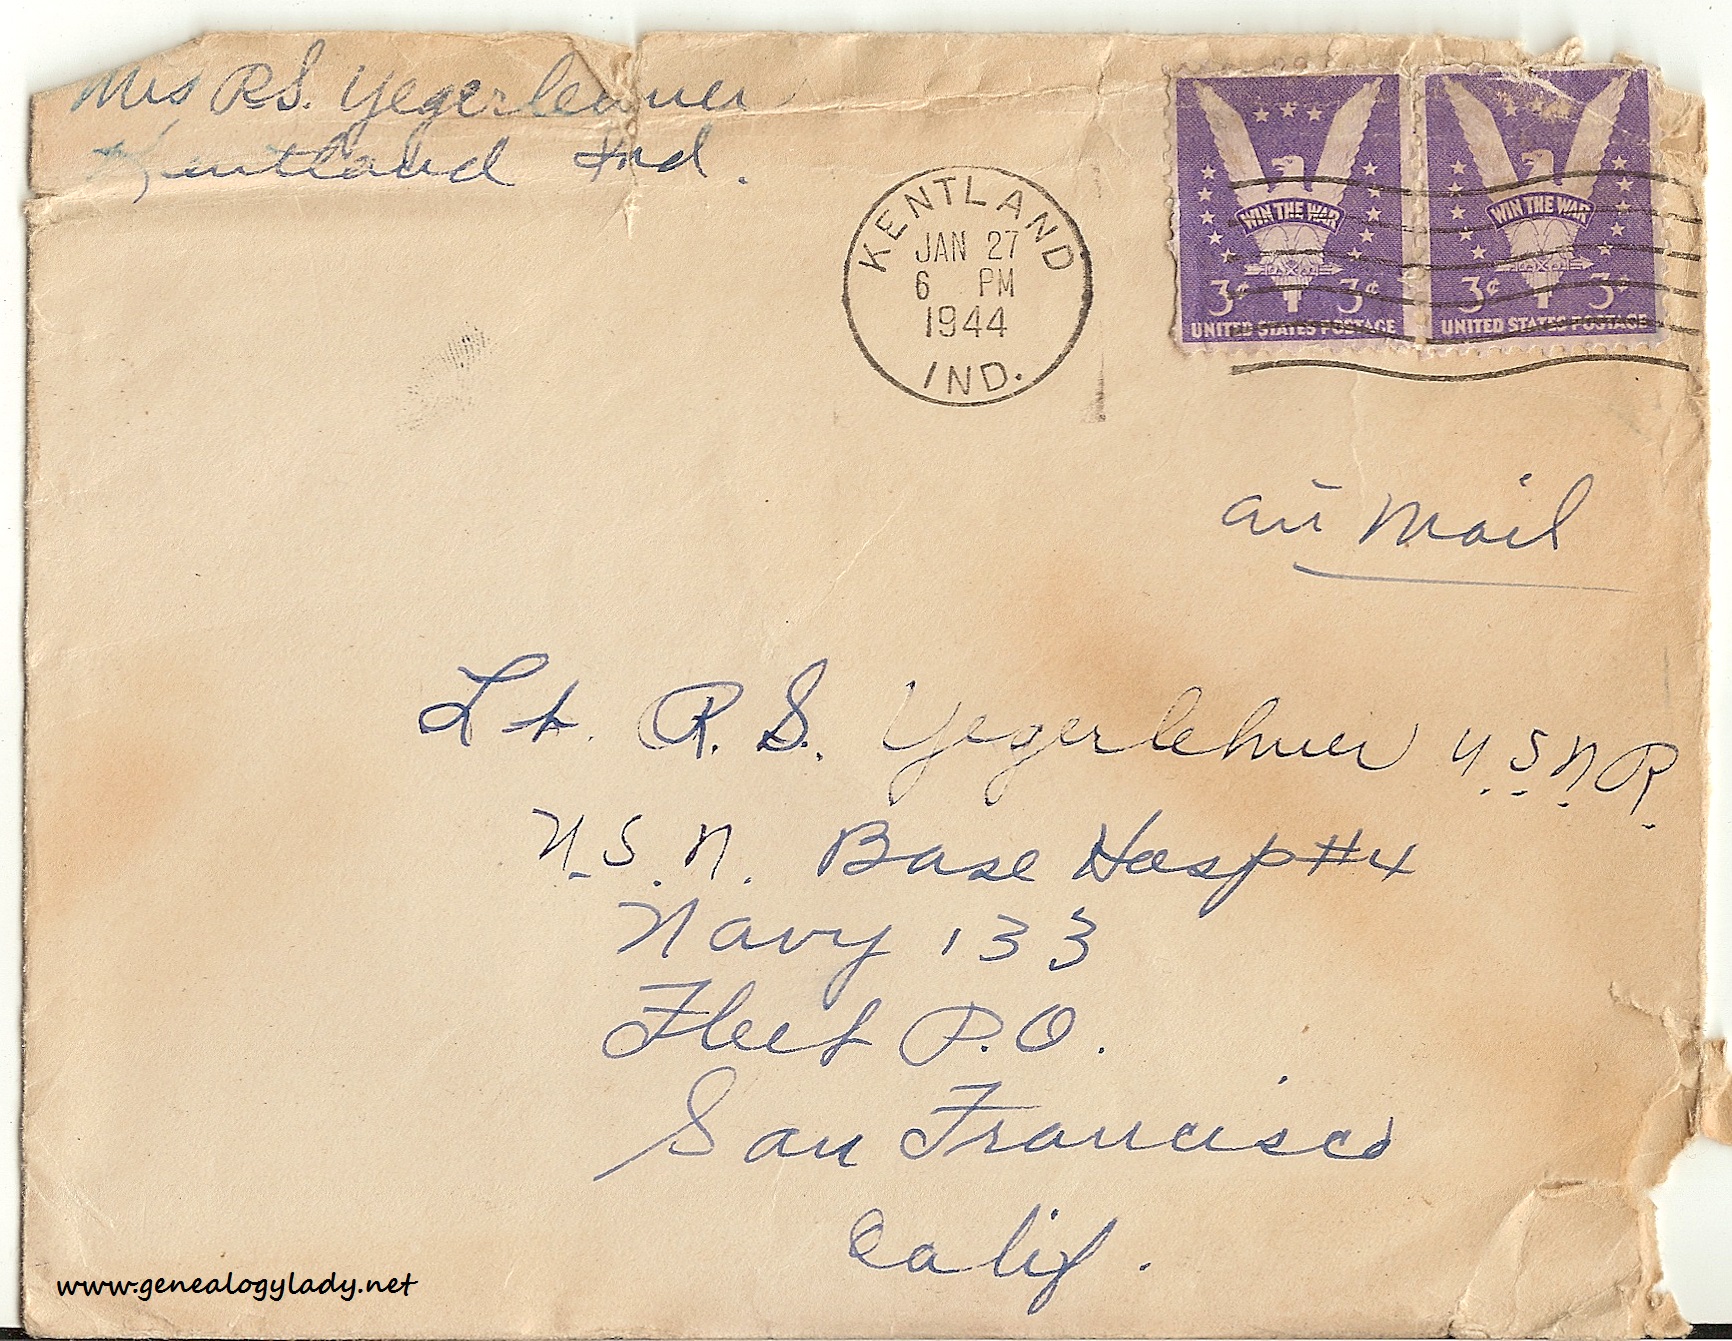 Mrs R S. Yegerlehner
Kentland Ind.
KENTLAND
JAN 27
6 PM
1944
IND.
WIN THE WAR
3¢ 3¢
UNITED STATES POSTAGE
WIN THE WAR
3¢ 3¢
UNITED STATES POSTAGE
air Mail
Lt. R. S. Yegerlehner U.S.N.R.
U.S.N. Base Hosp #4
Navy 133
Fleet P.O.
San Francisco
Calif.
www.genealogylady.net